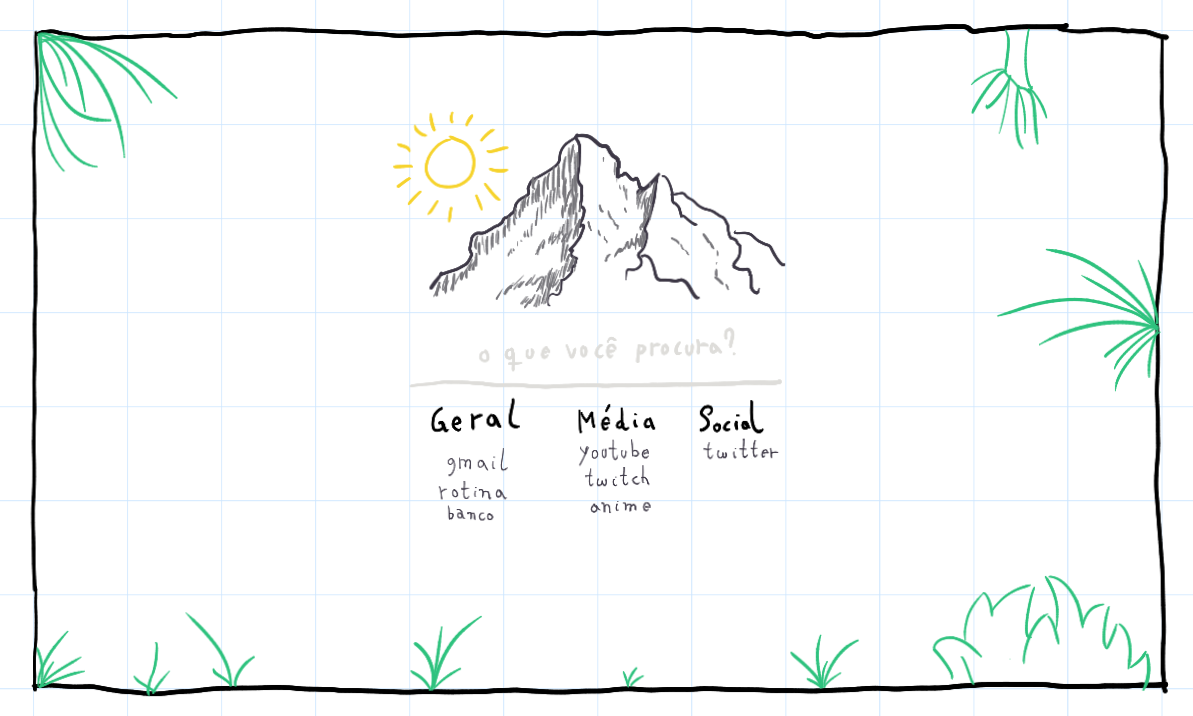 o que você procura?
Geral
gmail
rotina
banco
Média
youtube
twitch
anime
Social
twitter